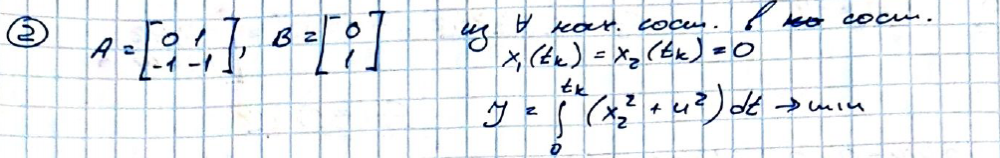 ② A = [0 1 -1 -1], B = [0 1] из ∀ нач. сост. в сост.
x₁(tₖ) = x₂(tₖ) = 0
J = ∫₀^tₖ (x₂² + u²) dt → min